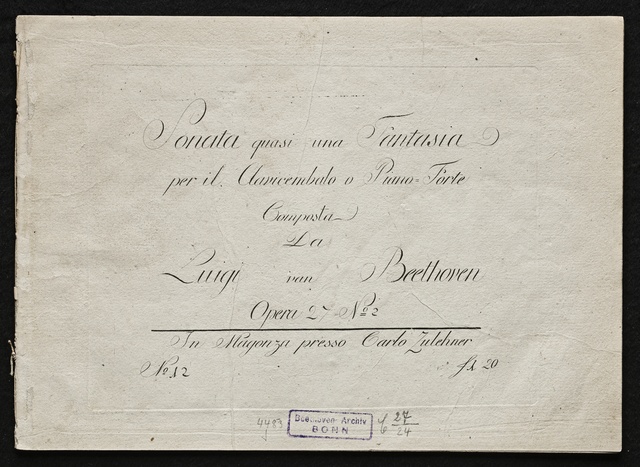 Sonata quasi una Fantasia
per il Clavicembalo o Piano=Forte
Composta
Da
Luigi van Beethoven
Opera 27 No 2
In Magonza presso Carlo Zulehner
No 12
f 1. 20
4483
Beethoven-Archiv
BONN
27
24